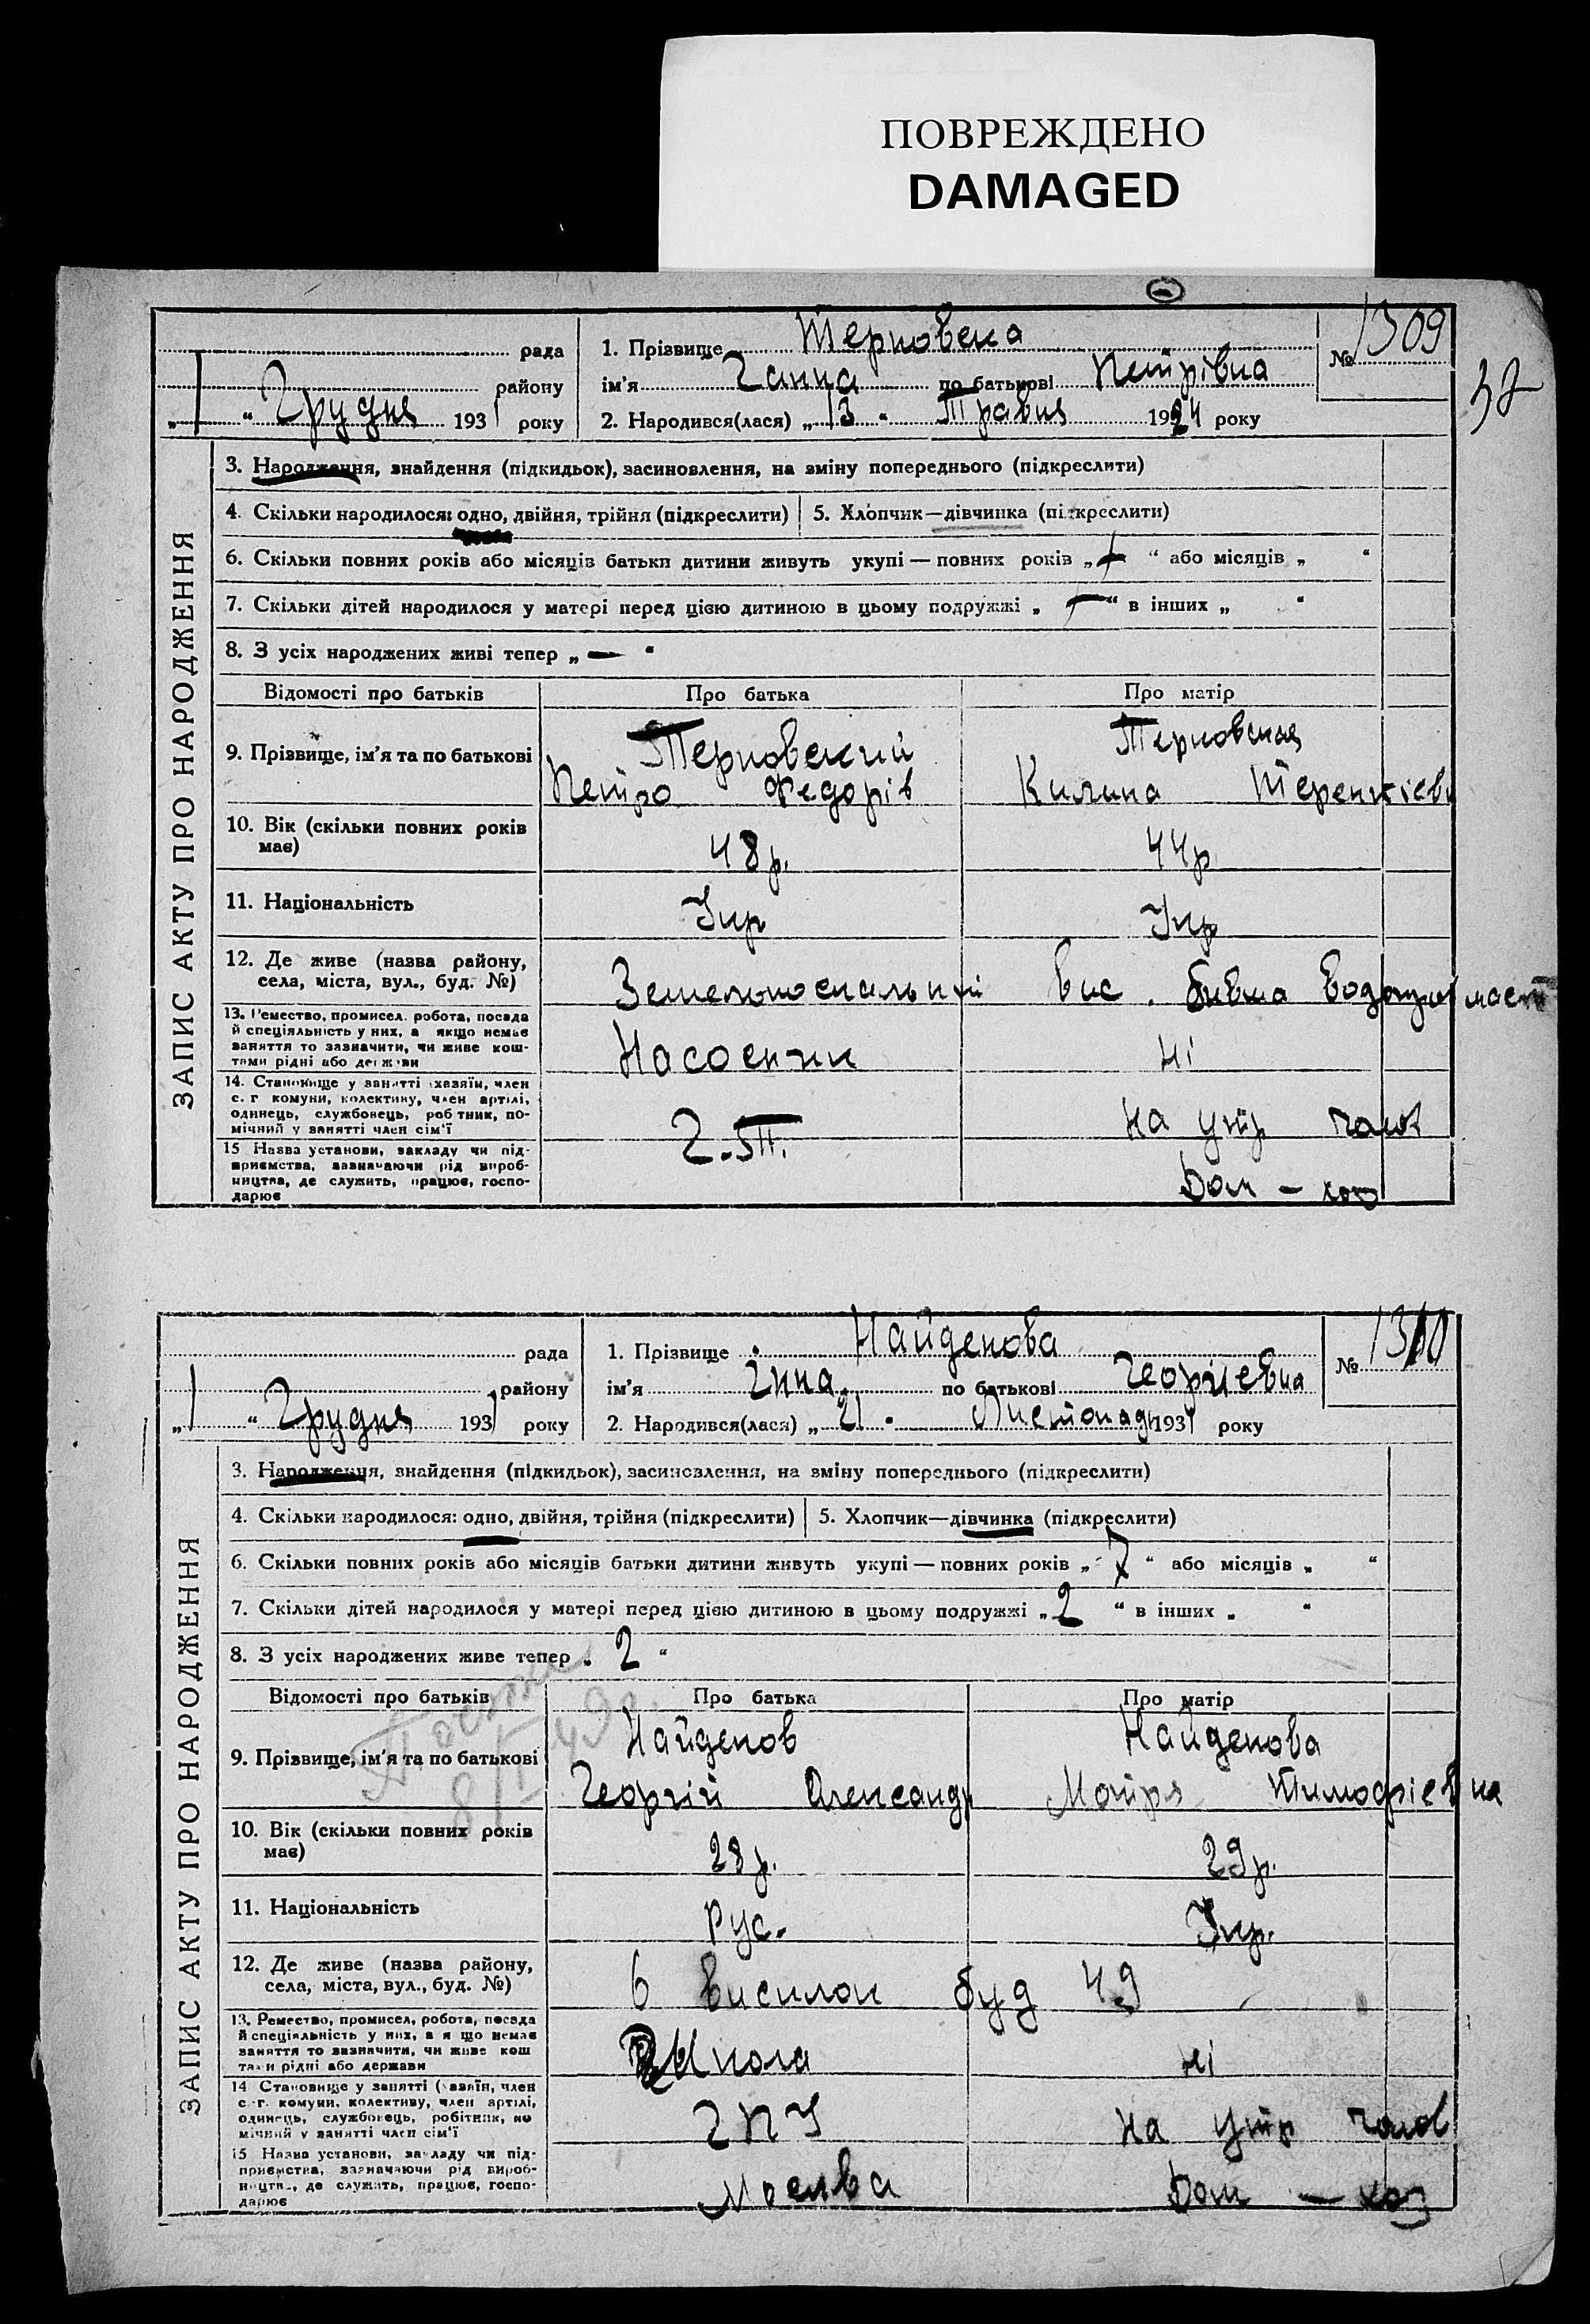 ПОВРЕЖДЕНО
DAMAGED
рада
1. Прізвище Терновска
№ 1309
району
ім'я Ганна по батькові Петрівна
37
„1“ Грудня 1931 року
2. Народився(лася) „13“ Травня 1924 року
ЗАПИС АКТУ ПРО НАРОДЖЕННЯ
3. Народження, знайдення (підкидьок), засиновлення, на зміну попереднього (підкреслити)
4. Скільки народилося: одно, двійня, трійня (підкреслити)
5. Хлопчик—дівчинка (підкреслити)
6. Скільки повних років або місяців батьки дитини живуть укупі — повних років „ “ або місяців „ “
7. Скільки дітей народилося у матері перед цією дитиною в цьому подружжі „—“ в інших „ “
8. З усіх народжених живі тепер „—“
Відомості про батьків
Про батька
Про матір
9. Прізвище, ім'я та по батькові
Терновский
Петро Федорів
Терновская
Килина Терентієв
10. Вік (скільки повних років має)
48 р.
44 р
11. Національність
Укр
Укр
12. Де живе (назва району,
села, міста, вул., буд. №)
вис.
13. Ремество, промисел, робота, посада
й спеціяльність у них, а якщо немає
заняття то зазначити, чи живе кош-
тами рідні або держави
Насосник
ні
14. Становище у занятті (хазяїн, член
с. г. комуни, колективу, член артілі,
одинець, службовець, робітник, по-
мічний у занятті член сім'ї
на утр чолов
15 Назва установи, закладу чи під-
приємства, зазначаючи рід вироб-
ництва, де служить, працює, госпо-
дарює
Дом — хоз
рада
1. Прізвище Найденова
№ 1310
району
ім'я Інна по батькові Георгіевна
„1“ Грудня 1931 року
2. Народився(лася) „21“ Листопад 1931 року
ЗАПИС АКТУ ПРО НАРОДЖЕННЯ
3. Народження, знайдення (підкидьок), засиновлення, на зміну попереднього (підкреслити)
4. Скільки народилося: одно, двійня, трійня (підкреслити)
5. Хлопчик—дівчинка (підкреслити)
6. Скільки повних років або місяців батьки дитини живуть укупі — повних років „7“ або місяців „ “
7. Скільки дітей народилося у матері перед цією дитиною в цьому подружжі „2“ в інших „ “
8. З усіх народжених живе тепер „2“
Відомості про батьків
Про батька
Про матір
9. Прізвище, ім'я та по батькові
Найденов
Георгій Олександ
Найденова
Тимофієвна
10. Вік (скільки повних років має)
28 р.
29 р.
11. Національність
Рус.
Укр.
12. Де живе (назва району,
села, міста, вул., буд. №)
6 висилок буд 49
13. Ремество, промисел, робота, посада
й спеціяльність у них, а якщо немає
заняття то зазначити, чи живе кош
тами рідні або держави
Школа
ні
14 Становище у занятті (хазяїн, член
с.-г. комуни, колективу, член артілі,
одинець, службовець, робітник, по
мічний у занятті член сім'ї
ГПУ
на утр чолов
15 Назва установи, закладу чи під-
приємства, зазначаючи рід вироб-
ництва, де служить, працює, госпо-
дарює
Москва
Дом — хоз